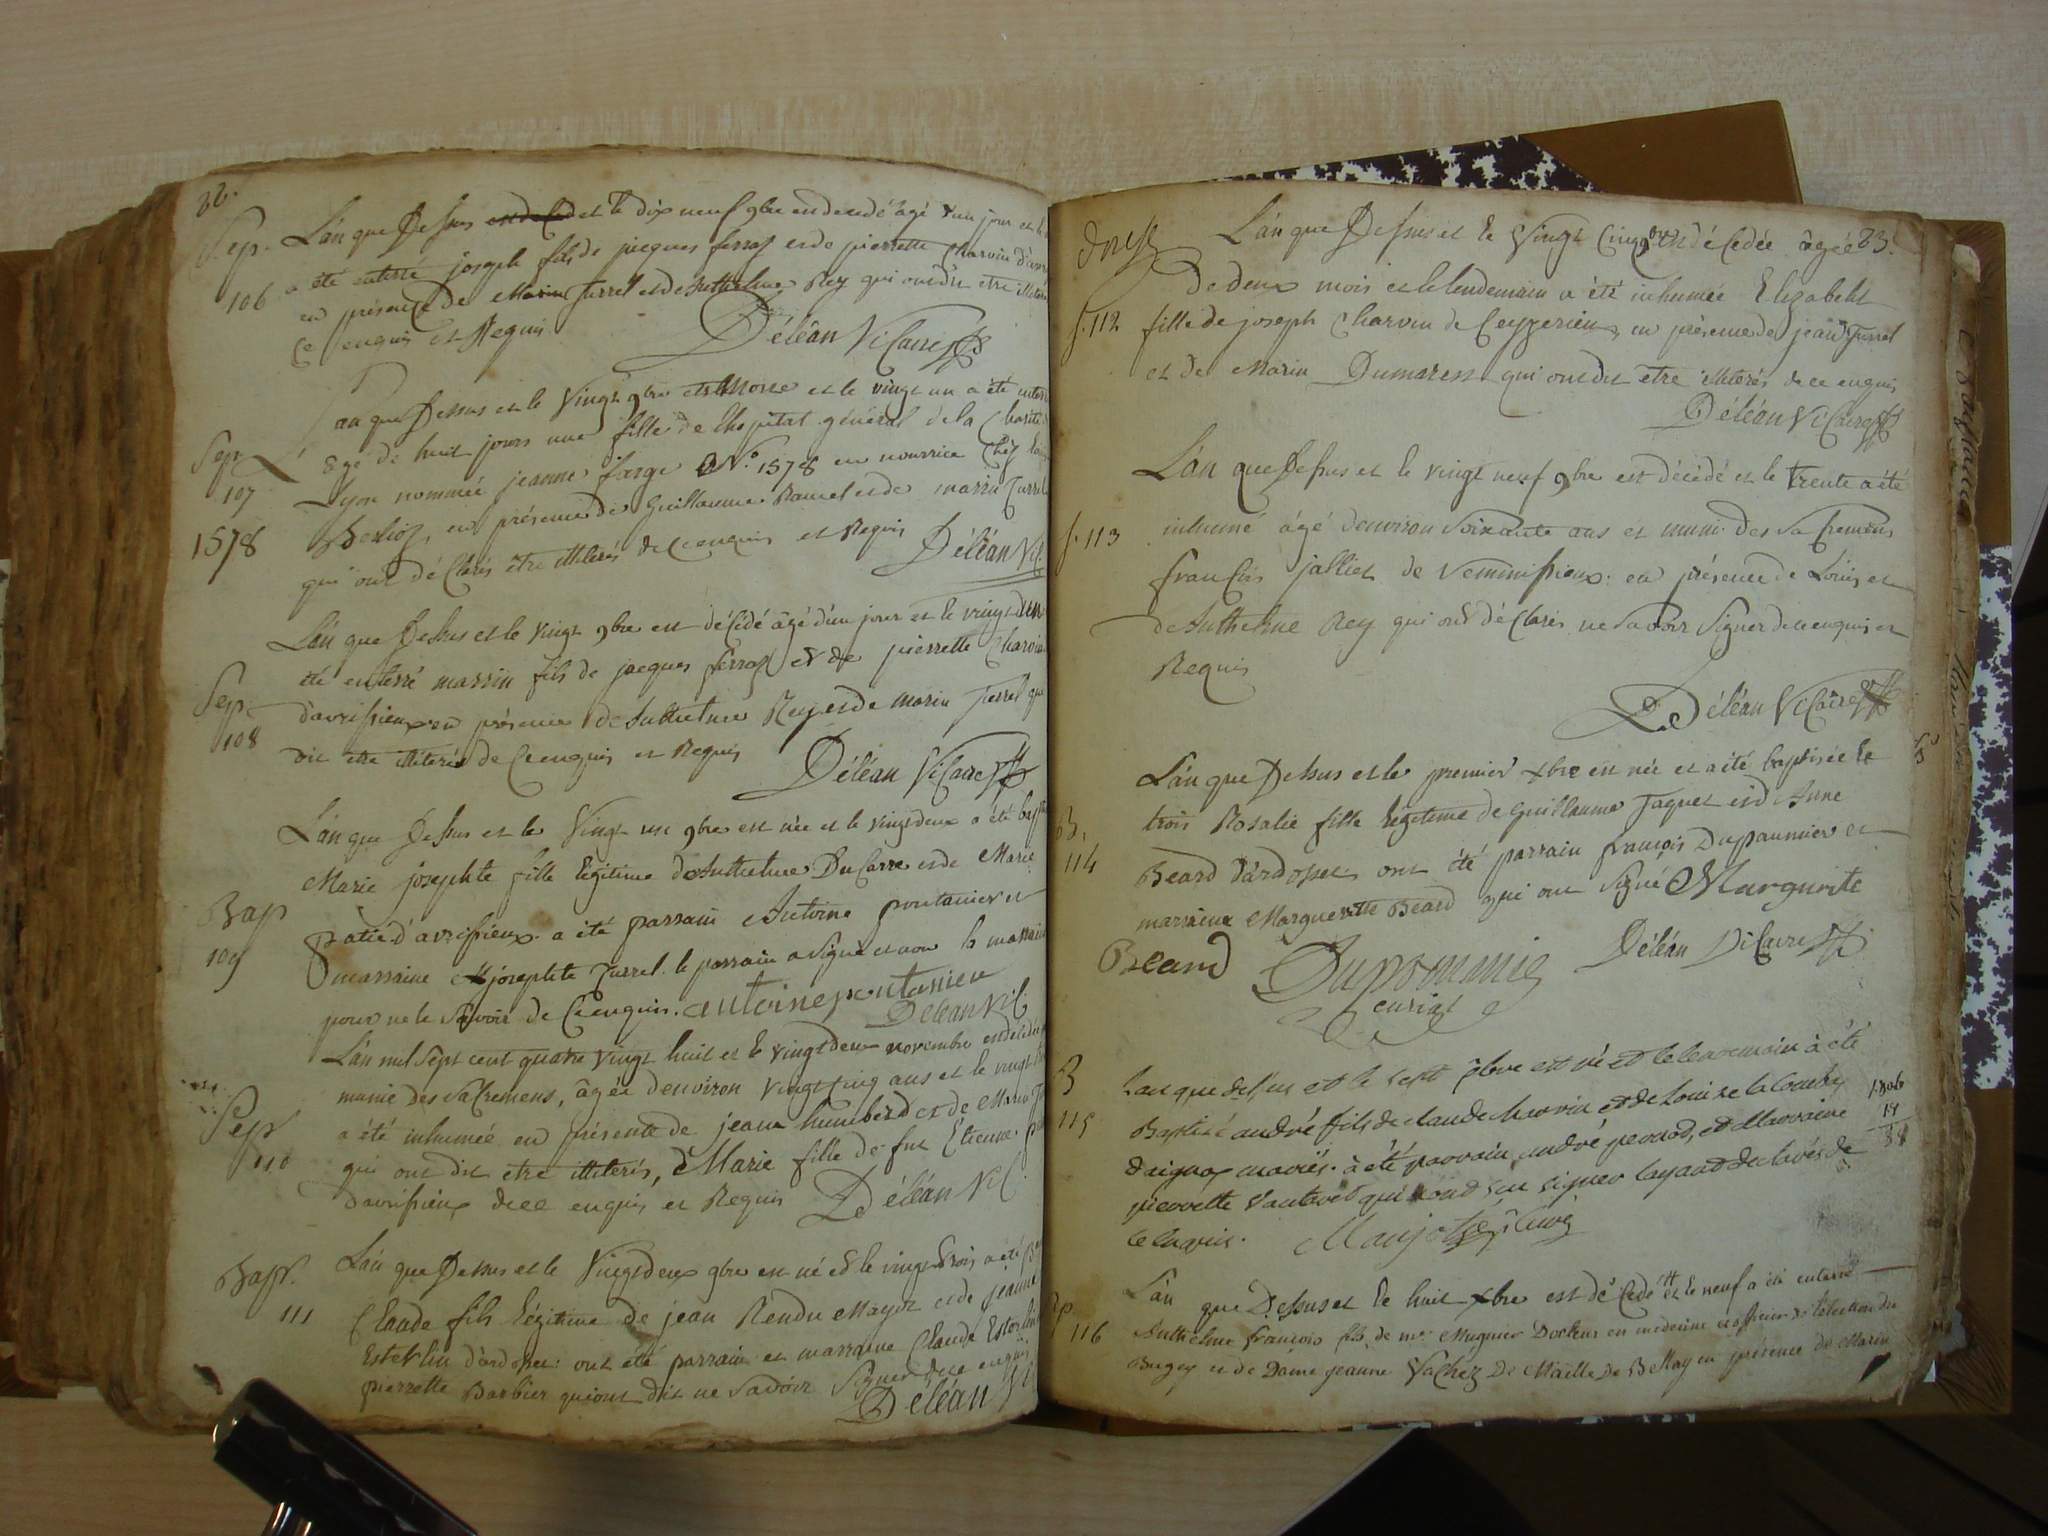 22.
Sep.
106
L'an que Dessus et le dix neuf 9bre est decedé âgé d'un jour et le
a été enterré joseph fils de jacques ferraz et de pierrette Charvin
en présence de Marin Turrel et de Anthelme Rey qui ont dit etre illiterés
Ce enquis et Requis Déléan Vicaire
Sep
107
1578
L'an que Dessus et le Vingt 9bre est Morte et le vingt un a été
age de huit jours une fille de l'hopital général de la Charité
Lyon nommée jeanne farge N.º 1578 en nourrice chez
Berlioz, en présence de Guillaume et de marin Turrel
qui ont déClarés être illiterés de Ce enquis et Requis Déléan Vic.
Sep.
108
L'an que Dessus et le vingt 9bre est déCédé âgé d'un jour et le vingt d'un
été enterré marin fils de jacques ferraz et de pierrette Charvin
d'avrissieux en présence de Anthelme Rey et de marin Turrel qui
dit etre illiterés de Ce enquis et Requis Déléan Vicaire
Bap
109
L'an que Dessus et le Vingt un 9bre est née et le vingt deux a été
Marie josephte fille légitime de Anthelme DuCarre et de Marie
d'avrissieux. a été parrain Antoine pontanier et
marraine josephte Turrel. le parrain a signé et non la marraine
pour ne le savoir de Ce enquis. antoine pontanier
Déléan Vic.
Sep
110
L'an mil sept cent quatre vingt huit et le vingt deux novembre est decedée
munie des saCremens, âgée d'environ vingt cinq ans et le vingt
a été inhumée en présence de jean humberd et de Marin
qui ont dit etre illiterés, Marie fille de fut Etienne
d'avrissieux de ce enquis et Requis Déléan Vic.
Bap.
111
L'an que Dessus et le Vingt deux 9bre est né et le vingt trois a été
Claude fils légitime de jean Rendu Mayot et de jeanne
Esterlin d'ardosset: ont été parrain et marraine Claude Esterlin
pierrette Barbier qui ont dit ne savoir signer de ce enquis
Déléan
23.
L'an que Dessus et le Vingt Cinq 9bre est déCedée âgée
De deux mois et le lendemain a été inhumée Elizabeht
f. 112 fille de joseph Charvin de Ceyzerieu, en présence de jean Turrel
et de Marin Dumarest qui ont dit etre illiterés de ce enquis
Déléan ViCaire
L'an que Dessus et le vingt neuf 9bre est décédé et le trente a été
f. 113 inhumé âgé d'environ soixante ans et muni des saCremens
franCois jallier de Vemmissieux. en présence de Louis et
de Anthelme Rey qui ont déClarés ne savoir signer de ce enquis et
Requis
Déléan ViCaire
L'an que Dessus et le premier xbre est née et a été baptisée le
B.
114
trois Rosalie fille légitime de guillaume jaquet et d'Anne
Beard d'ardosset ont été parrain françois Dupaumier et
marraine Marguerite Beard qui ont signé Margurite
Beard Dupommie Déléan ViCaire
curial
B
115
L'an que dessus et le sept xbre est né et le lendemain à été
Baptisé andré fils de claude Mervin et de Louise lacombe
daignoz mariés. à été parrain andré peroud, et Marraine
pierrette vautaret qui n'ont seu signer layant déclarés de
ce enquis. Maujot Curé
1806
14
88
Sep.
116
L'an que Dessus et le huit xbre est déCedé et le neuf a été enterré
Anthelme françois fils de mr. Mugnier Docteur en medecine et officier de l'élection du
Bugey et de Dame jeanne Vachez De Maille De Bellay en présence de Marin